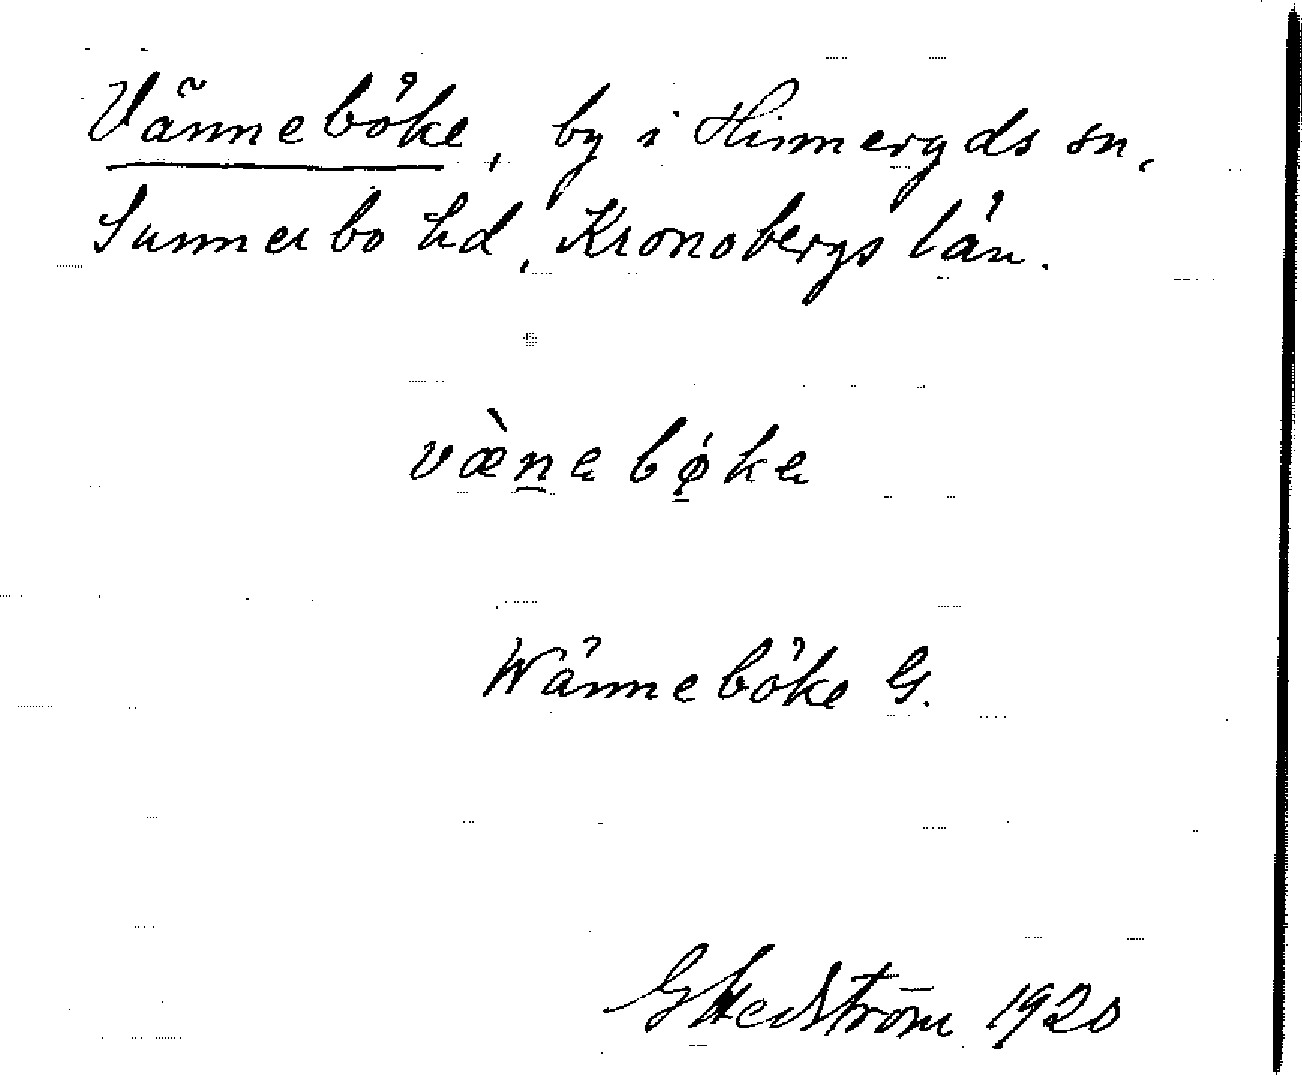 Vänneböke, by i Hinneryds sn,
Sunnerbo hd, Kronobergs län.
væ̀nebø̀ke
Wänneböke G.
G Hedström 1920